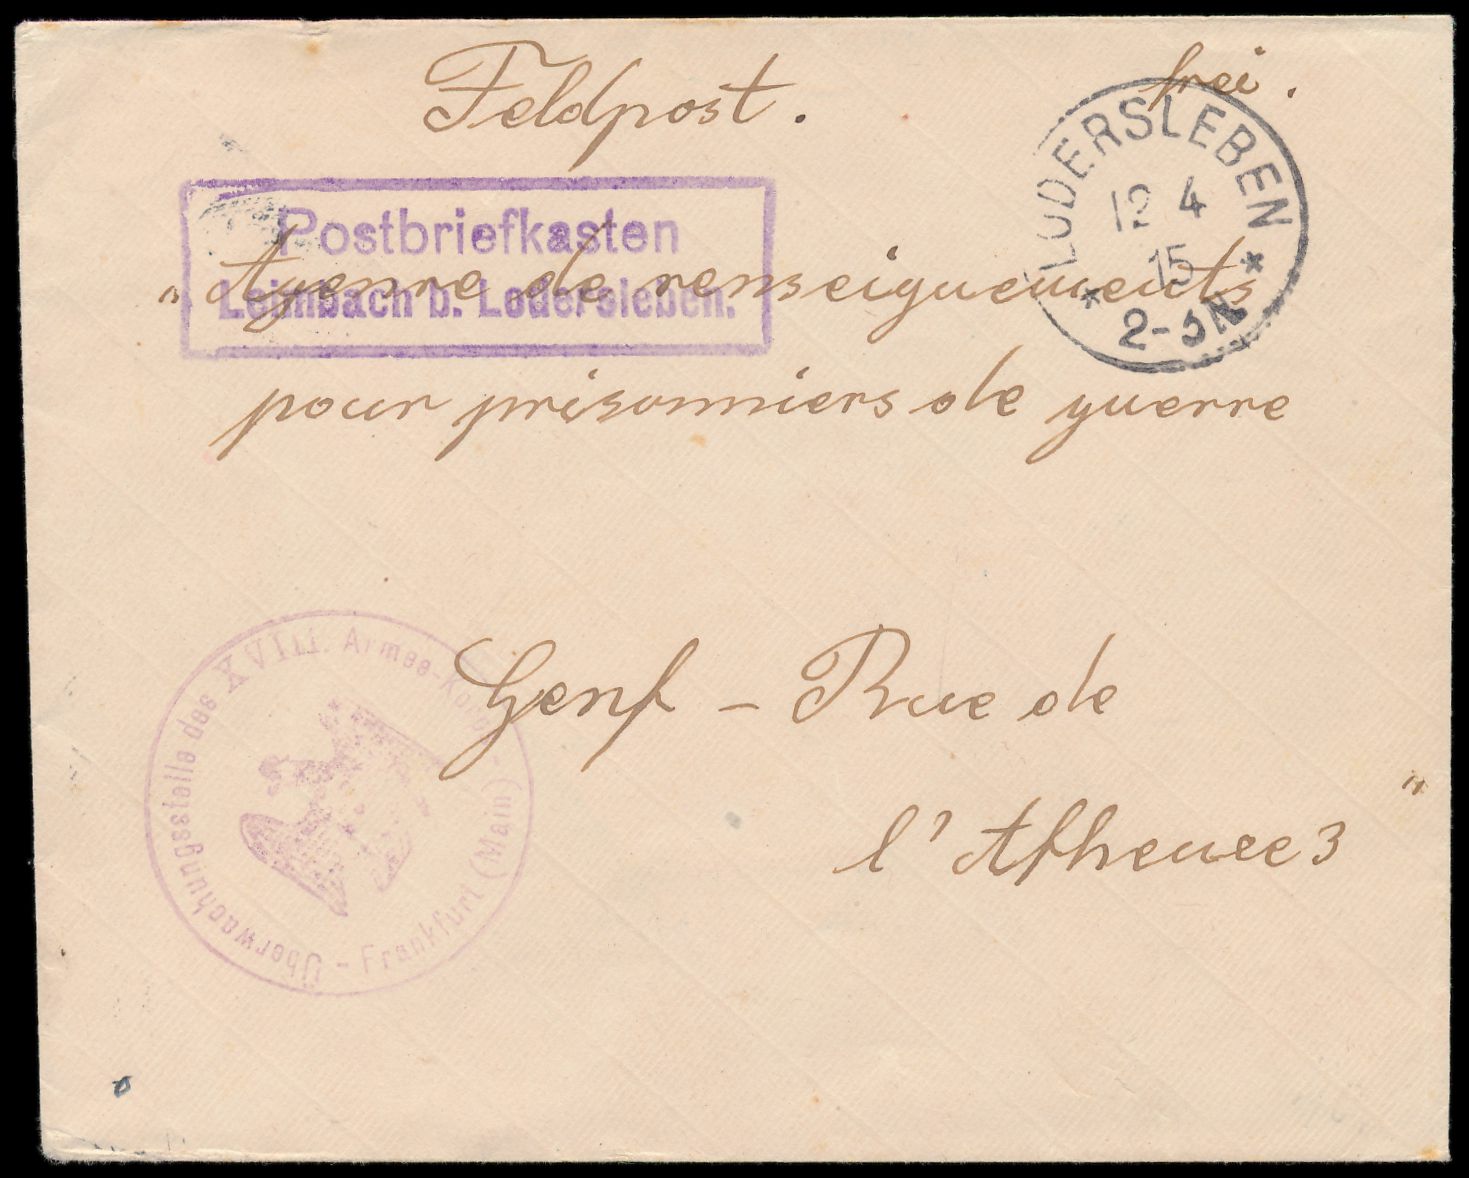 Feldpost.
frei.
LODERSLEBEN
12 4
15
* 2-3N *
Postbriefkasten
Leimbach b. Lodersleben.
„ Agenre de renseiguements
pour prisonniers de guerre
Genf – Rue de
l'Atheuee 3 "
Überwachungsstelle des XVIII. Armee-Korps - Frankfurt (Main) -